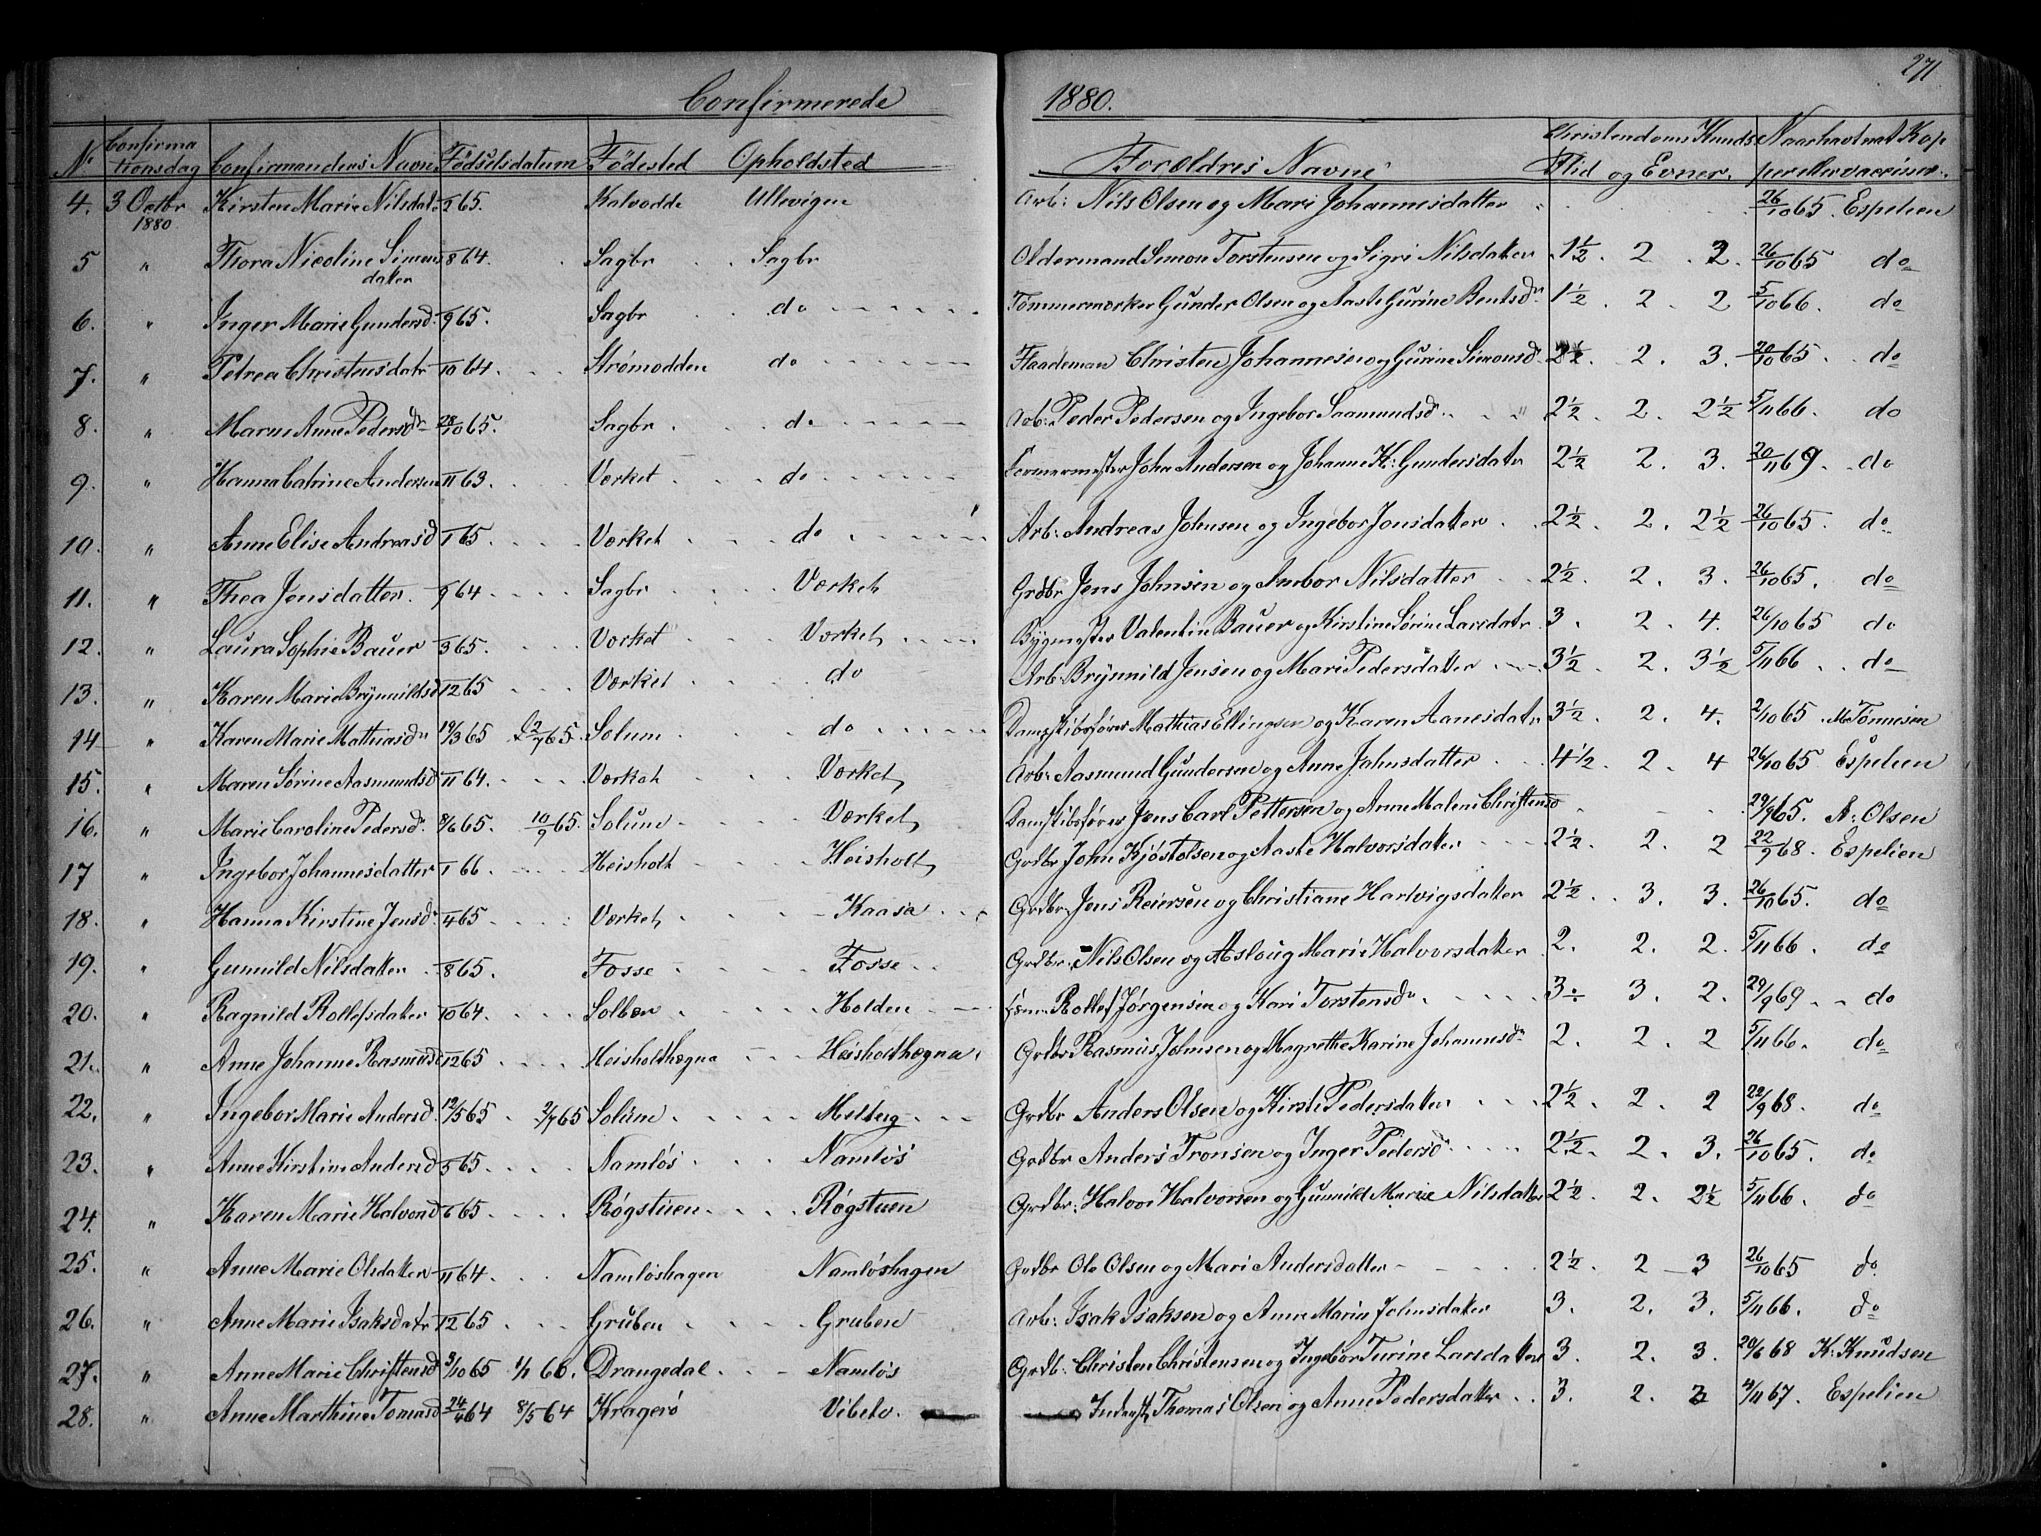 271
Confirmerede 1880.
Nr Confirmationsdag Confirmandens Navn Fødselsdatum Fødested Opholdsted Forældres Navne Christendoms Kunds. Flid og Evner. Naar havt nat. Kopper eller vaccineret
4. 3 Octbr 1880 Kirsten Marie Nilsdatr 65. Kalvodde Ullevigen Arb: Nils Olsen og Mari Johannesdatter 26/10 65. Espelien
5 " Thora Nicoline Simonsdatter 8 64. Sagbr Sagbr Oldermand Simon Torstensen og Sigri Nilsdatter 1½ 2 2. 26/10 65 do
6. " Inger Marie Gundersd. 9 65. Sagbr do Tømmermerker Gunder Olsen og Aaste Gurine Bentsdr 1½ 2 2 5/10 66. do
7. " Petrea Christensdatr 10 64. Strømodden do Flaademan Christen Johannesen og Gurine Simonsd. 2½. 2. 3. 20/10 65. do
8. " Maren Anne Pedersdr 28/10 65. Sagbr do Arb: Peder Pedersen og Ingebor Saamundsdr 2½. 2. 2½ 5/11 66. do
9. " Hanna Catrine Andersen 11 63. Værket do Formermester John Andersen og Johanne K: Gundersdatr 2½ 2. 3. 20/11 69. do
10. " Anne Elise Andreasd 1 65. Værket do Arb: Andreas Johnsen og Ingebor Jonsdatter 2½. 2. 2½ 26/10 65. do
11. " Thea Jensdatter. 9 64. Sagbr Værket Grdbr Jens Johnsen og Anbor Nilsdatter 2½ 2. 3. 26/10 65. do
12. " Laura Sophie Bauer 3 65. Værket Værket Bygmester Valentin Bauer og Kirstine Sørine Larsdatr 3. 2. 4. 26/10 65 do
13. " Karen Marie Brynnildsd 12 65 Værket do Arb: Brynnild Jensen og Mari Pedersdatter 3½ 2. 3½ 5/11 66. do
14 " Karen Marie Mathiasdr 19/3 65 2/7 65. Solum do Dampskibsfører Mathias Ellingsen og Karen Aanesdatr 3½ 2. 4. 2/10 65 Tønnesen
15. " Maren Sørine Aasmundsd 11 64. Værket Værket Arb: Aasmund Gundersen og Anne Johnsdatter 4½ 2. 4 26/10 65 Espelien
16. " Marie Caroline Pedersdr 8/6 65. 10/9 65. Solum Værket Damskibsfører Jens Carl Pettersen og Anne Malene Christensd 29/9 65. A: Olsen
17 " Ingebor Johannesdatter 1 66. Heisholt Heisholt Grdbr John Kjøstolsen og Aaste Halvorsdatter 2½. 2. 2 22/9 68. Espelien
18. " Hanna Kirstine Jensdr 4 65 Værket Kaasa Grdbr. Jens Reiersen og Christiane Hartvigsdatter 2½ 3. 3. 26/10 65. do
19. " Gunnild Nilsdatter 8 65. Fosse Fosse Grdbr. Nils Olsen og Asloug Marie Halvorsdatter 2. 2. 2. 5/11 66. do
20. " Ragnild Rollefsdatter 10 64. Holden Rollef Jørgensen og Kari Torstensdr 3 3. 2. 29/9 69. do
21. " Anne Johanne Rasmusd 12 65 Heisholthægna Heisholthægna Grdbr Rasmus Johnsen og Magrethe Karine Johannesdr 2. 2. 2 5/11 66. do
22. " Ingebor Marie Andersd 12/5 65 2/7 65 Solum Melberg Grdbr Anders Olsen og Kirsti Pedersdatter 2½ 2. 2 22/9 68. do
23. " Anne Kirstine Andersd 5 65. Namløs Namløs Grdbr Anders Tronsen og Inger Pedersd 2½. 2. 3. 26/10 65. do
24. " Karen Marie Halvorsd 6 65. Røgstuen Røgstuen Grdbr: Halvor Halvorsen og Gunnild Marie Nilsdatter 2½ 2. 2½ 5/11 66. do
25. " Anne Marie Olsdatter 11 64. Namløshagen Namløshagen Grdbr Ole Olsen og Mari Andersdatter 2½. 2 3 26/10 65 do
26. " Anne Marie Isaksdatr 12 65 Gruben Gruben Arb: Isak Isaksen og Anne Marie Johnsdatter 3. 2. 3. 5/11 66. do
27. " Anne Marie Christensd 3/10 65 1/1 66. Drangedal Namløs Grdb: Christen Christensen og Ingebor Turine Larsdatter 3. 2. 3. 20/6 68 K: Knudsen
28. " Anne Marthine Tomasd 24/4 64 8/5 64 Kragerø Vibeto. Inderst, Thomas Olsen og Anne Pedersdatter 3. 2. 3 4/11 67. Espelien